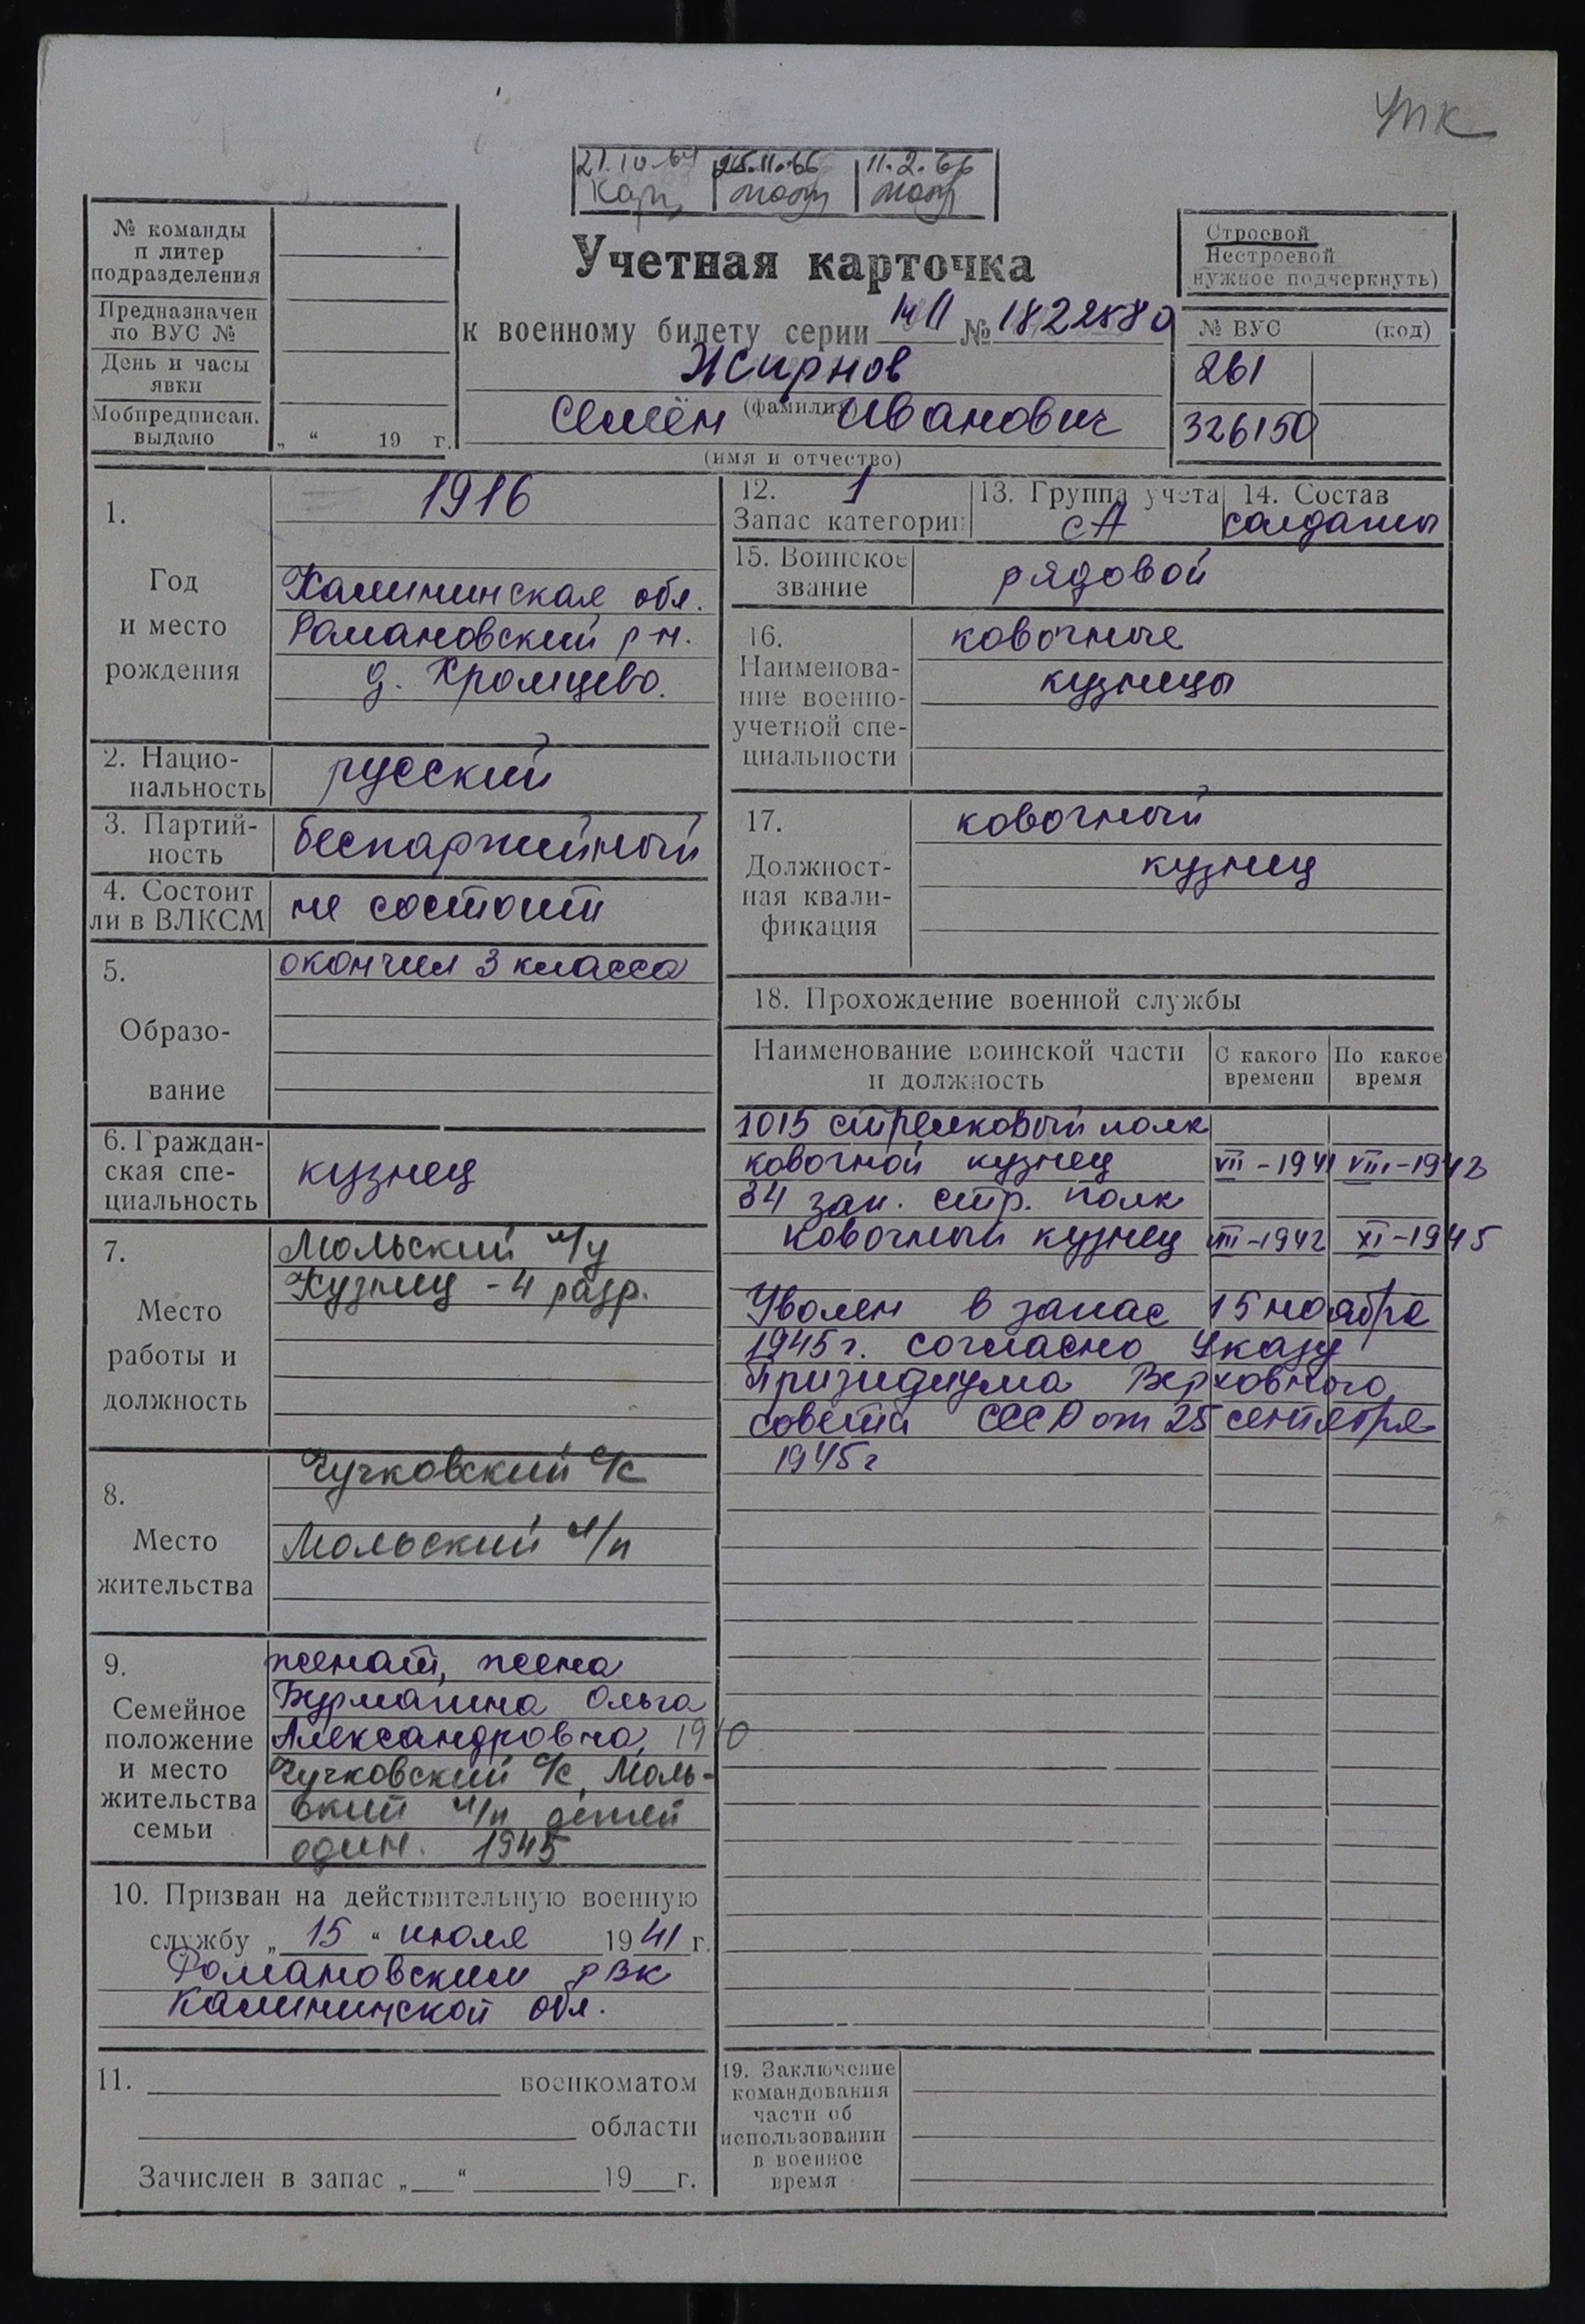 УПК
21.10.64 25.11.66 11.2.66
№ команды
и литер
подразделения
Предназначен
по ВУС №
День и часы
явки
Мобпредписан.
выдано
„ “ 19 г.
Учетная карточка
к военному билету серии № 1822580
Жирнов
(фамилия)
Семён Иванович
(имя и отчество)
Строевой
Нестроевой
нужное подчеркнуть)
№ ВУС (код)
261
326150
1. Год и место рождения
1916
Калининская обл.
Рамановский р-н.
д. Хромцево.
2. Национальность
русский
3. Партийность
беспартийный
4. Состоит
ли в ВЛКСМ
не состоит
5. Образование
окончил 3 класса
6. Гражданская специальность
кузнец
7. Место работы и должность
Мольский л/у
Кузнец - 4 разр.
8. Место жительства
Чучковский с/с
Мольский л/п
9. Семейное положение и место жительства семьи
женат, жена
Бурмагина Ольга
Александровна, 1910
Чучковский с/с, Моль-
ский л/п детей
один. 1945
10. Призван на действительную военную
службу „ 15 “ июля 1941 г.
Романовским РВК
Калининской обл.
11. военкоматом
области
Зачислен в запас „ “ 19 г.
12. 1
Запас категории
13. Группа учета
СА
14. Состав
солдаты
15. Воинское
звание
рядовой
16. Наименование военно-учетной специальности
ковочные
кузнецы
17. Должностная квалификация
ковочный
кузнец
18. Прохождение военной службы
Наименование воинской части
и должность
С какого
времени
По какое
время
1015 стрелковый полк
ковочной кузнец VII-1941 VIII-1942
34 зап. стр. полк
ковочный кузнец VIII-1942 XI-1945
Уволен в запас 15 ноября
1945 г. согласно Указу
Призидиума Верховного
совета СССР от 25 сентября
1945 г
19. Заключение
командования
части об
использовании
в военное
время